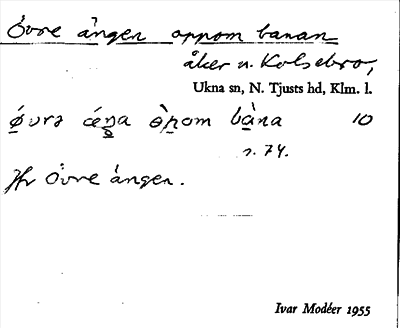 Övre ängen oppom banan
åker n. Kolsebro,
Ukna sn, N. Tjusts hd, Klm. l.
bàna 10
s. 74.
Jfr Övre ängen.
Ivar Modéer 1955